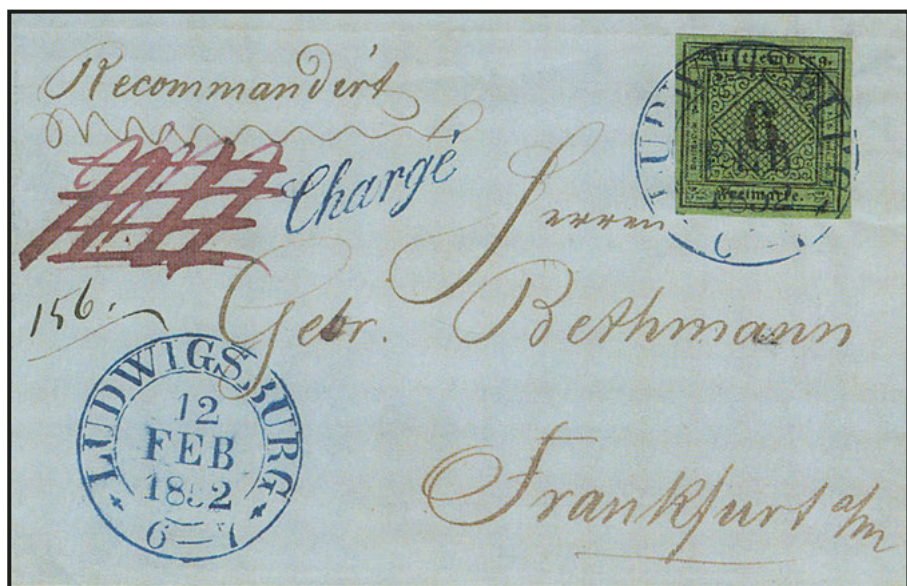 Recommandirt
Württemberg.
6
Freimarke.
LUDWIGSBURG
1852
Chargé
Herren
156.
Gebr. Bethmann
LUDWIGSBURG
12
FEB
1852
6–7
Frankfurt a/m